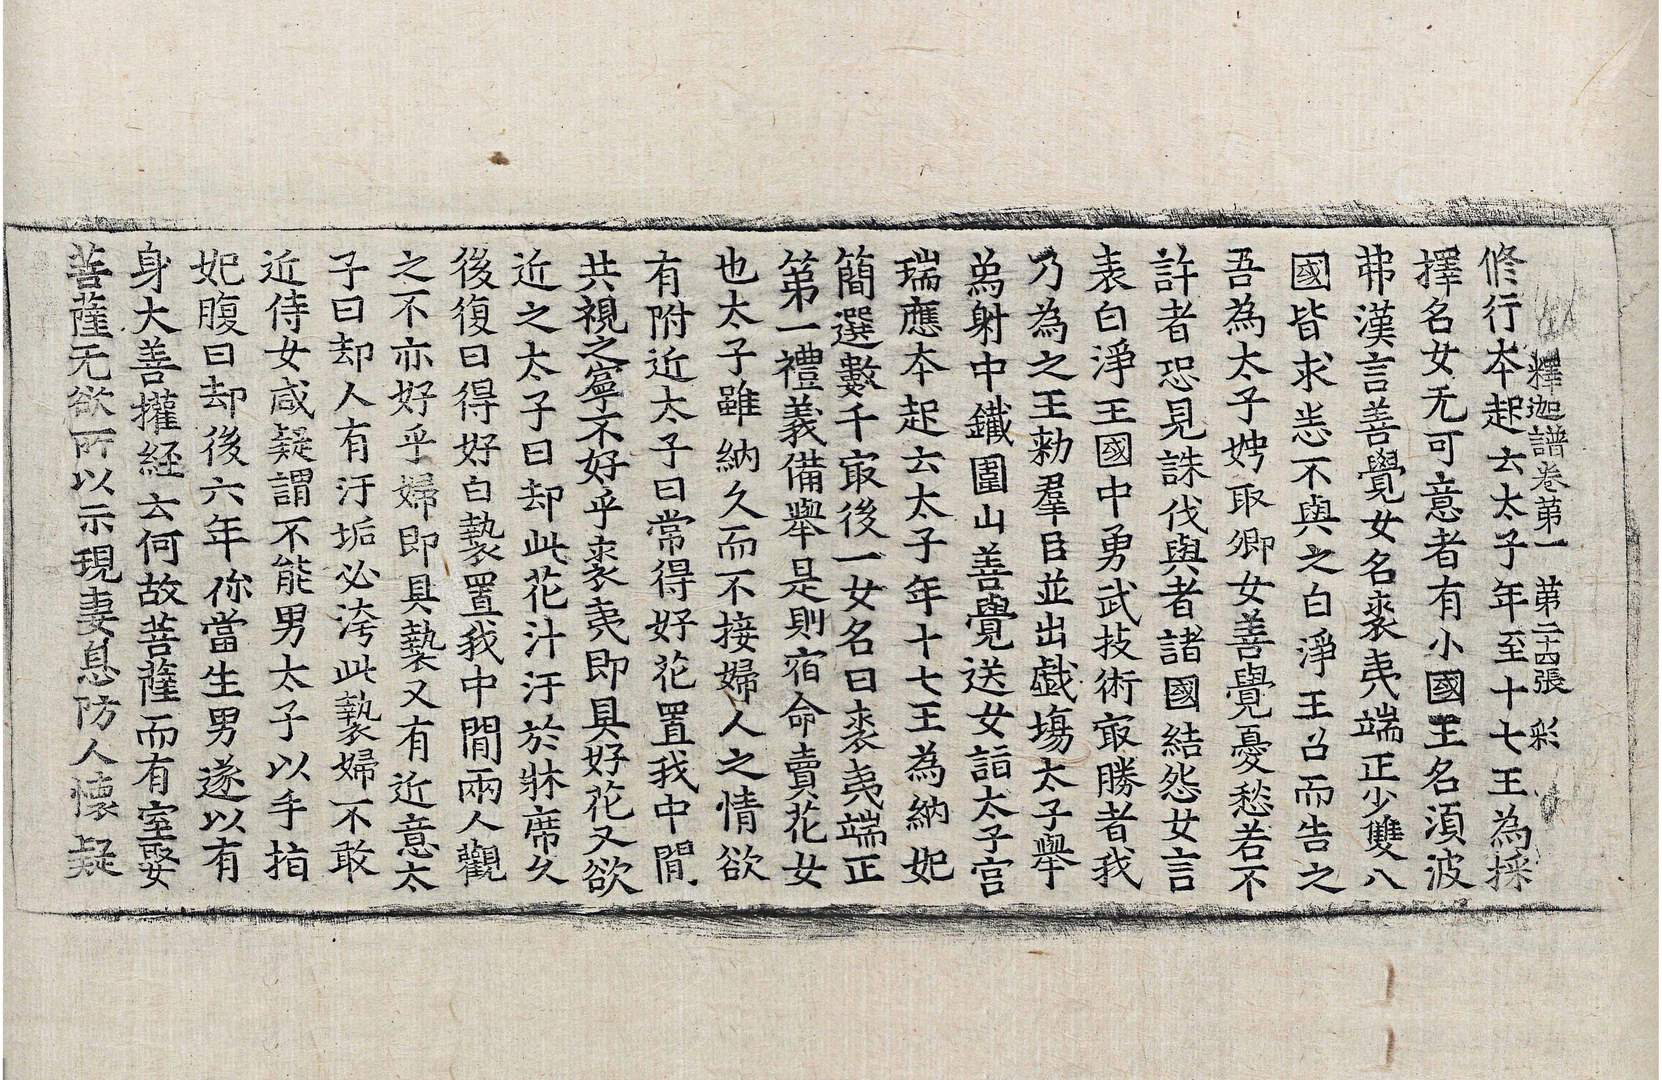 釋迦譜卷第一 第二十四張 彩
修行本起云太子年至十七王為採
擇名女无可意者有小國王名湏波
弗漢言善覺女名裘夷端正少雙八
國皆求恚不與之白淨王召而告之
吾為太子娉取卿女善覺憂愁若不
許者恐見誅伐與者諸國結怨女言
表白淨王國中勇武技術㝡勝者我
乃為之王勑羣臣並出戱塲太子舉
為射中鐵圍山善覺送女詣太子宮
瑞應本起云太子年十七王為納妃
簡選數千㝡後一女名曰裘夷端正
第一禮義備舉是則宿命賣花女
也太子雖納久而不接婦人之情欲
有附近太子曰常得好花置我中間
共視之寧不好乎裘夷即具好花又欲
近之太子曰却此花汁汙於牀席久
後復曰得好白㲲置我中間兩人觀
之不亦好乎婦即具㲲又有近意太
子曰却人有汙垢必洿此㲲婦不敢
近侍女咸疑謂不能男太子以手指
妃腹曰却後六年你當生男遂以有
身大善權經云何故菩薩而有室娶
菩薩无欲所以示現妻息防人懷疑